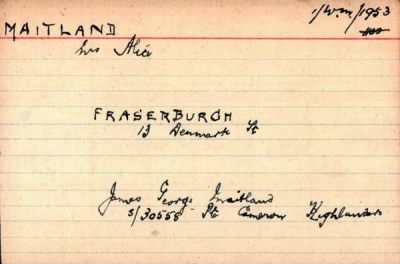 1/W.m/1953
MAITLAND
Mrs Alice
FRASERBURGH
13 Denmark St
James George Maitland
S/30558 Pte Cameron Highlanders